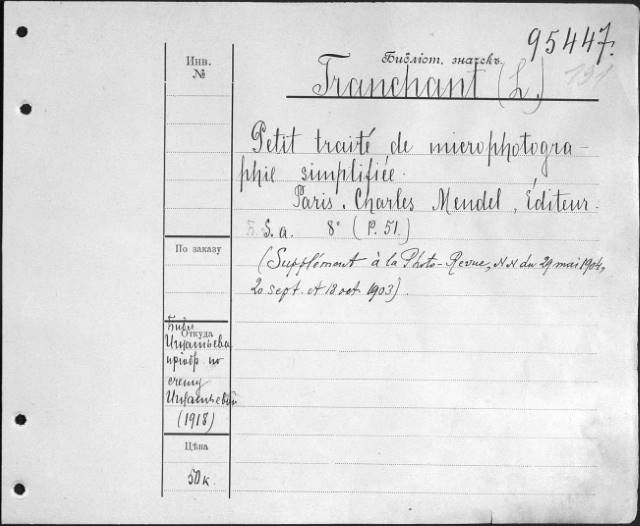 95447.
Инв.
№
Библіот. значекъ
131
Tranchant (L.)
Petit traité de microphotogra-
phie simplifiée.
Paris. Charles Mendel, Éditeur.
S. a. 8° (P. 51.)
(Supplément à la Photo-Revue, NN du 29 mai 1904,
20 sept. et 18 oct. 1903)
По заказу
Откуда
Библ
Игнатьева
пріобр. по
счету
Игнатьевой
(1918)
Цѣна
50 к